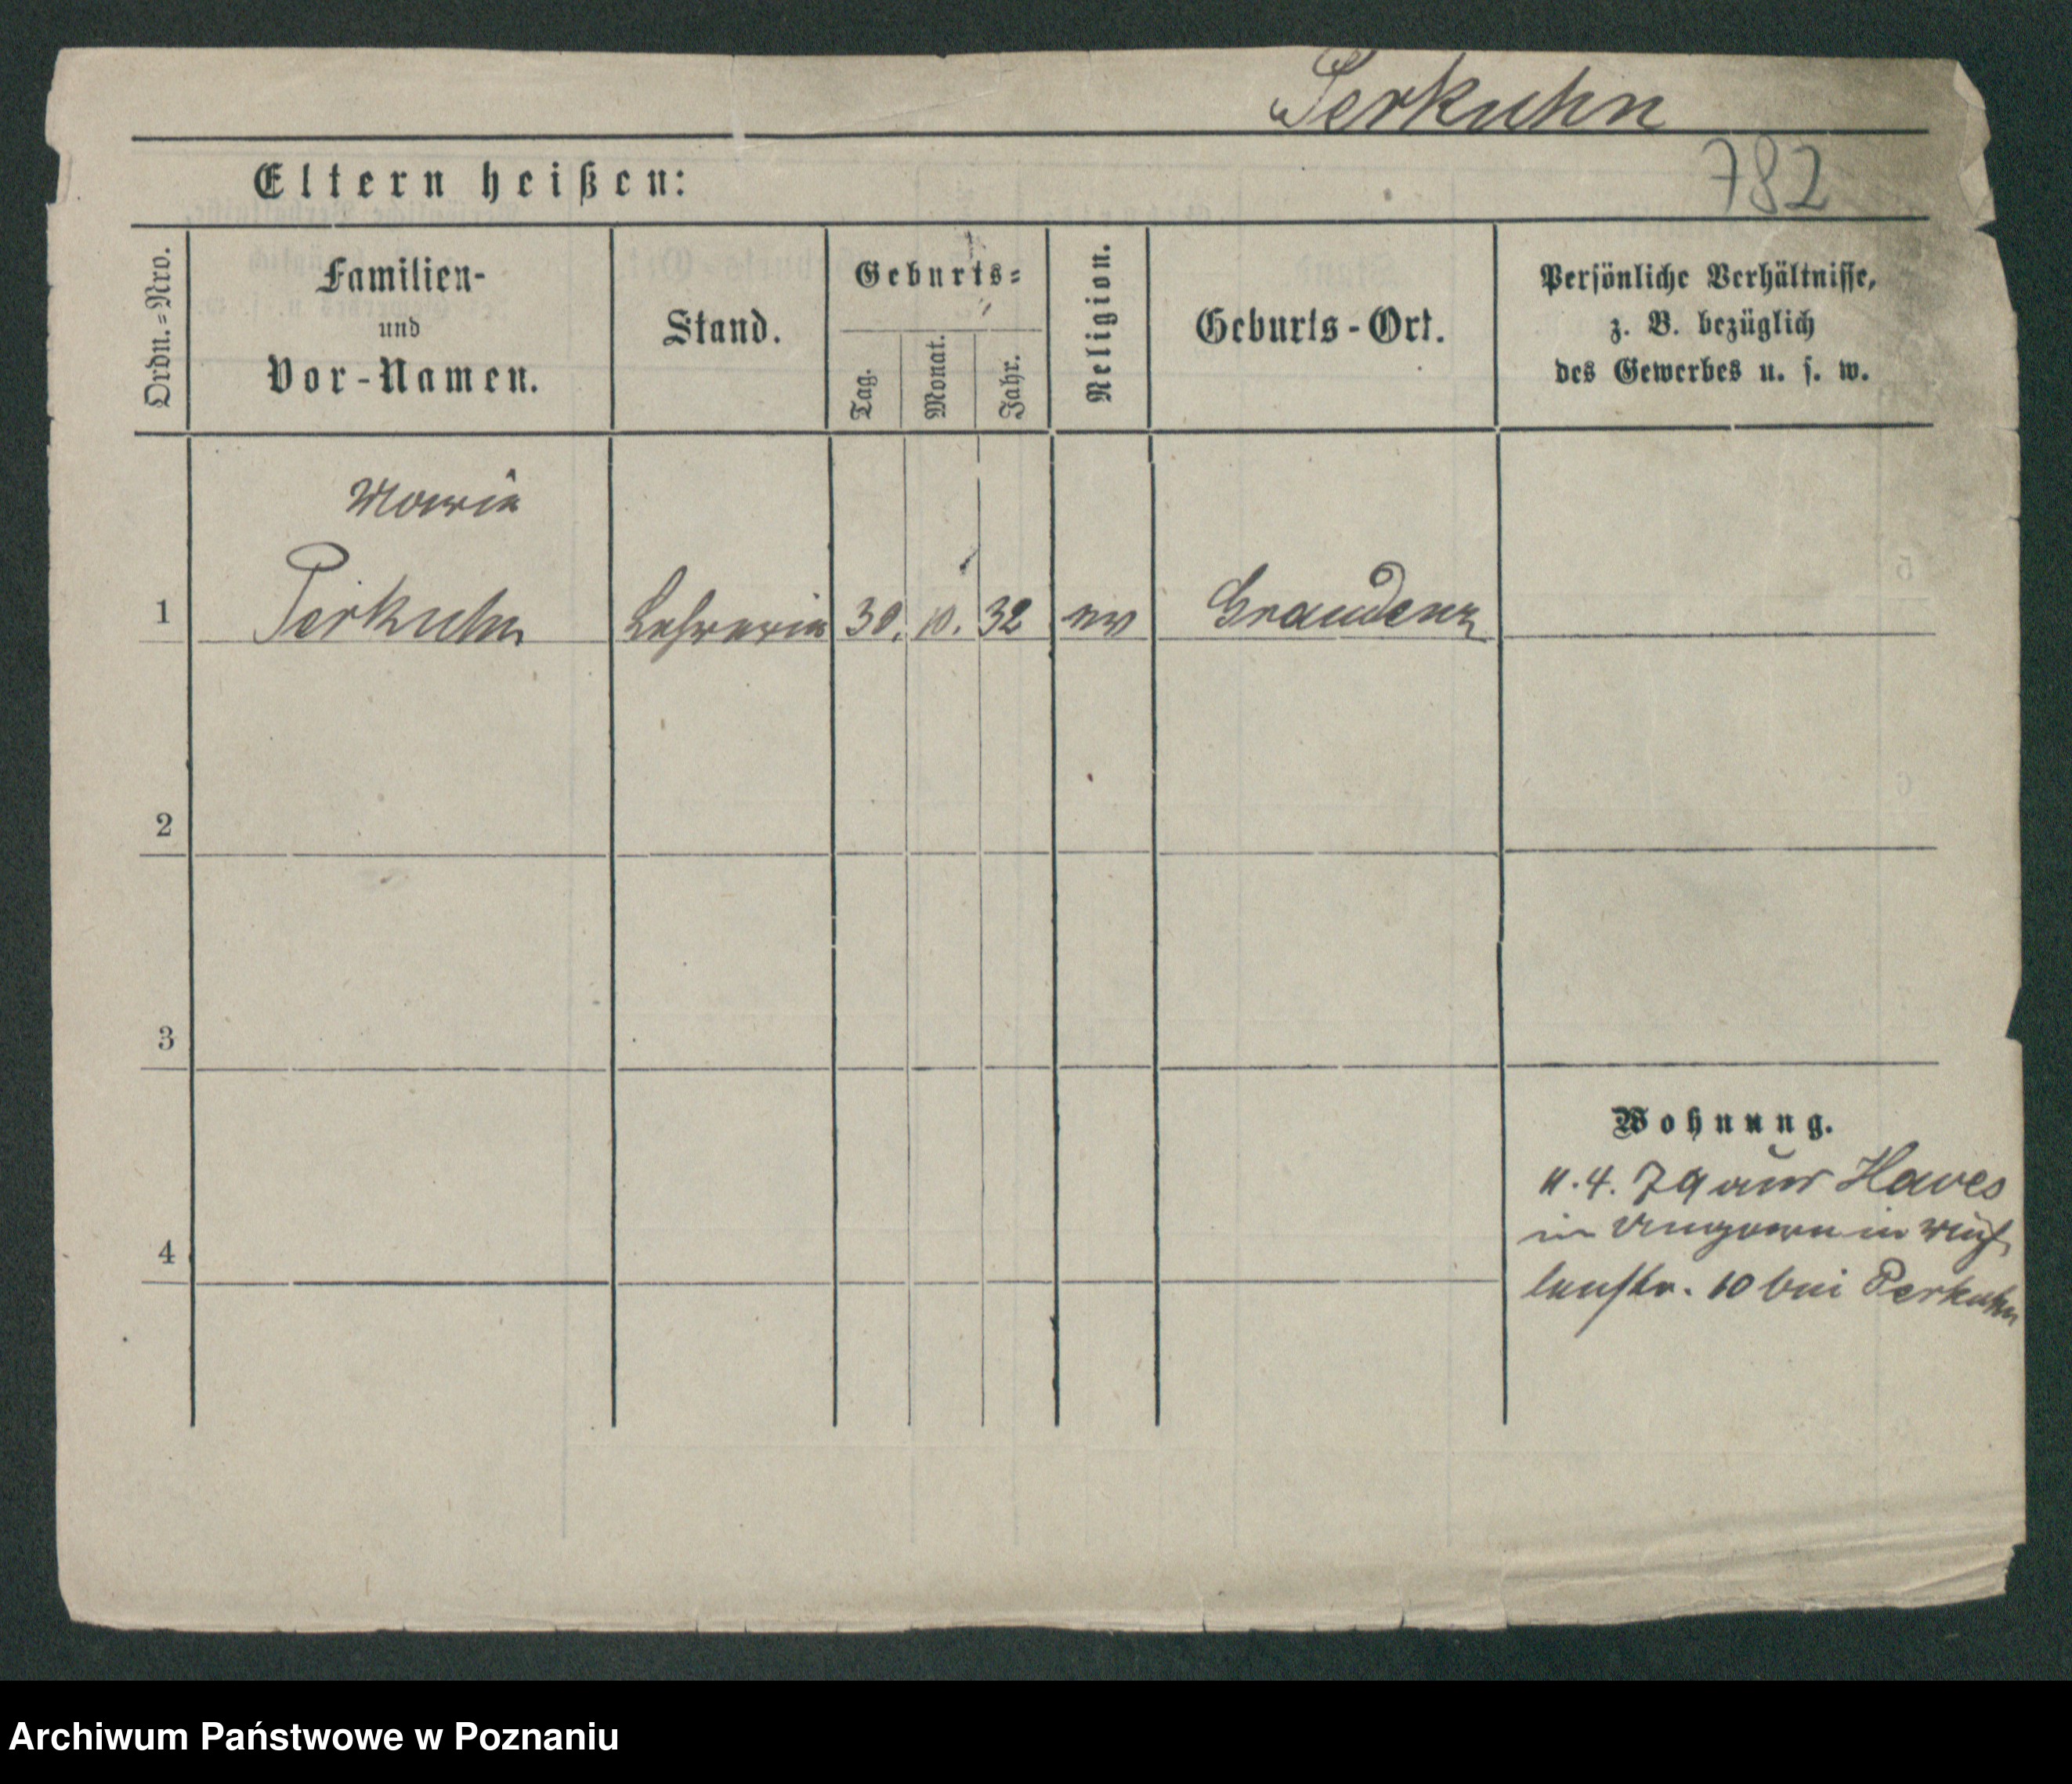 Perkuhn
782
Eltern heißen:
Ordn.=Nro.
Familien-
und
Vor-Namen.
Stand.
Geburts=
Tag.
Monat.
Jahr.
Religion.
Geburts-Ort.
Persönliche Verhältnisse,
z. B. bezüglich
des Gewerbes u. s. w.
Marie
1 Perkuhn Lehrerin 30. 10. 32 ev Graudenz
2
3
4
Wohnung.
11. 4. 79 aus
in Ungarn in
10 bei Perkuhn
Archiwum Państwowe w Poznaniu